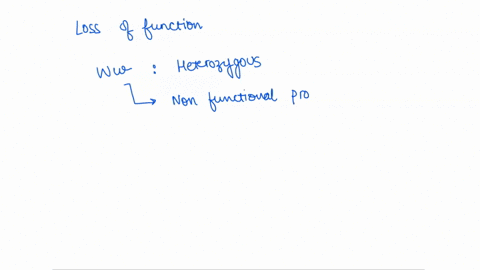 Loss of function
Ww : Heterozygous
Non functional pro